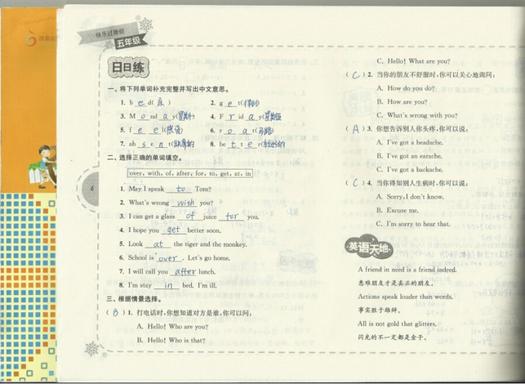 快乐过暑假
五年级
日日练
一、将下列单词补充完整并写出中文意思。
1. b e d(床) 2. g e t(得到)
3. M o nd a y(星期一) 4. F r id a y(星期五)
5. f e e l(感觉) 6. r o a d(马路)
7. ab s e n t(缺席的) 8. be t t e r(较好的)
二、选择正确的单词填空。
over, with, of, after, for, to, get, at, in
1. May I speak to Tom?
2. What's wrong wish you?
3. I can get a glass of juice for you.
4. I hope you get better soon.
5. Look at the tiger and the monkey.
6. School is over. Let's go home.
7. I will call you after lunch.
8. I'm stay in bed. I'm ill.
三、根据情景选择。
( B ) 1. 打电话时,你想知道对方是谁,你可以问:
A. Hello! Who are you?
B. Hello! Who is that?
6
C. Hello! What are you?
( C ) 2. 当你的朋友不舒服时,你可以关心地询问:
A. How do you do?
B. How are you?
C. What's wrong with you?
( A ) 3. 你想告诉别人你头疼,你可以说:
A. I've got a headache.
B. I've got an earache.
C. I've got a backache.
( C ) 4. 当你得知别人生病时,你可以说:
A. Sorry, I don't know.
B. Excuse me.
C. I'm sorry to hear that.
英语天地
A friend in need is a friend indeed.
患难朋友才是真正的朋友。
Actions speak louder than words.
事实胜于雄辩。
All is not gold that glitters.
闪光的不一定都是金子。